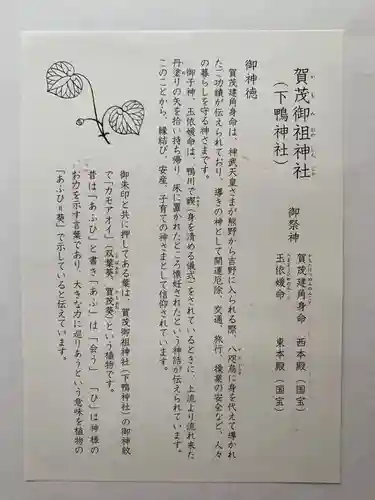 賀茂御祖神社
(下鴨神社)
御祭神
賀茂建角身命 西本殿(国宝)
玉依媛命 東本殿(国宝)
御神徳
賀茂建角身命は、神武天皇さまが熊野から吉野に入られる際、八咫烏に身を代えて導かれ
たご功績が伝えられており、導きの神として開運厄除、交通、旅行、操業の安全など、人々
の暮らしを守る神さまです。
御子神、玉依媛命は、鴨川で禊(身を清める儀式)をされているときに、上流より流れ来た
丹塗りの矢を拾い持ち帰り、床に置かれたところ懐妊されたという神話が伝えられています。
このことから、縁結び、安産、子育ての神さまとして信仰されています。
御朱印と共に押してある葉は、賀茂御祖神社(下鴨神社)の御神紋
で「カモアオイ」(双葉葵、賀茂葵)という植物です。
昔は「あふひ」と書き「あふ」は「会う」 「ひ」は神様の
お力を示す言葉であり、大きな力に巡りあうという意味を植物の
「あふひ=葵」で示していると伝えています。